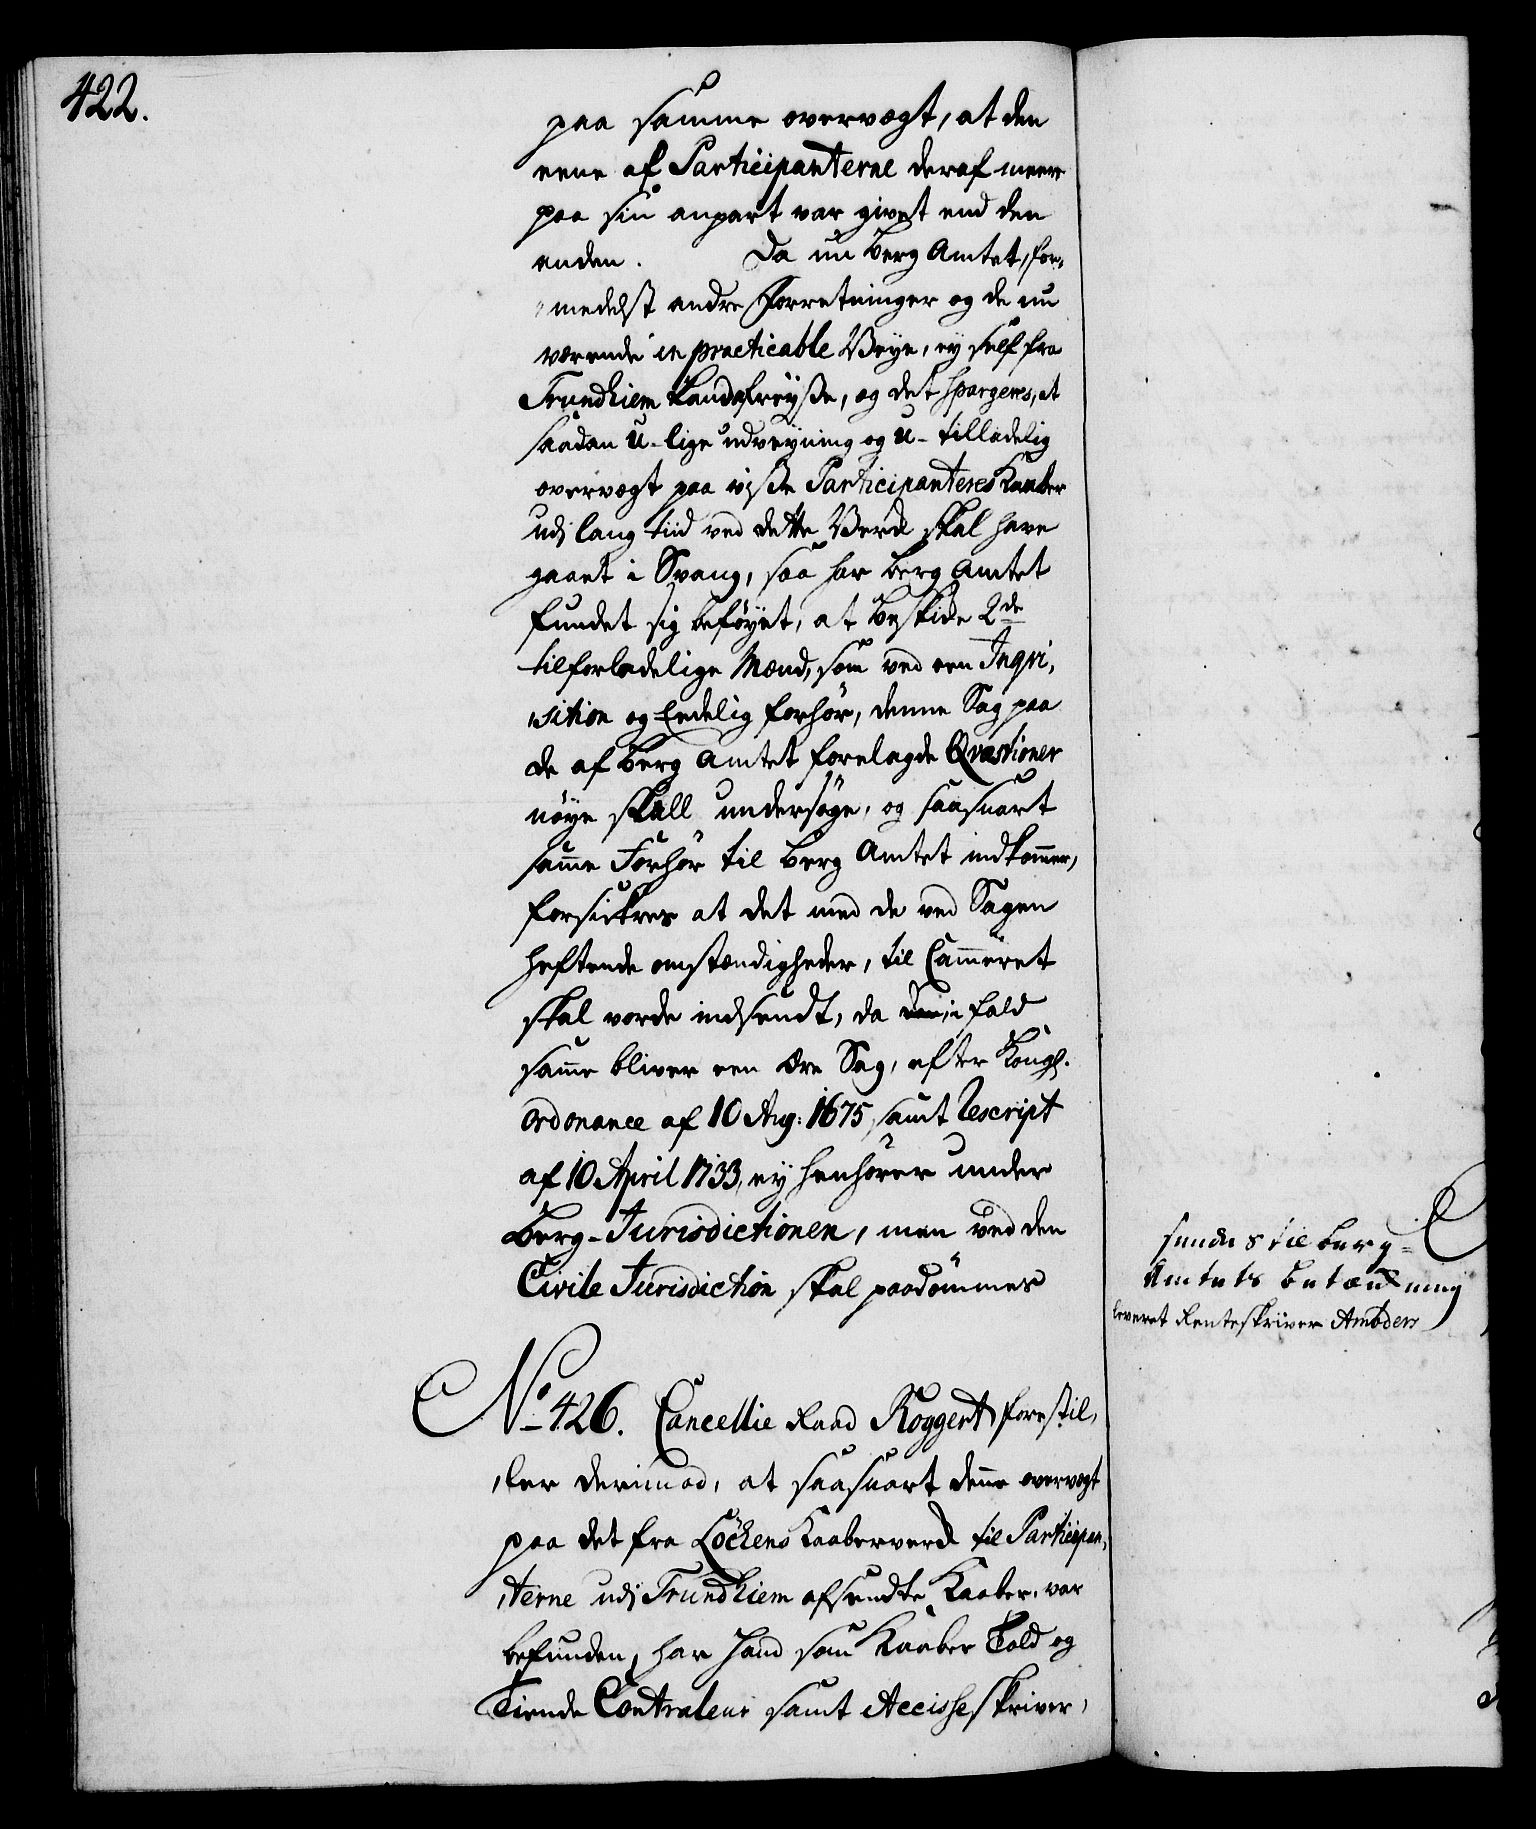 422.
paa samme overvægt, at den
eene af Participanterne deraf meere
paa sin anpart var givet end den
anden. Da nu Berg Amtet, for¬
medelst andre Forretninger og de nu
værende in practicable Veye, ej self fra
Trundhiem kand afreyse, og det spargeres, at
saadan U-lige udveyning og U-tilladelig
overvægt paa visse Participanteres Kaaber
udj lang tiid ved dette Verck skal have
gaaet i Svang, saa har Berg Amtet
fundet sig beføyet, at beskicke 2de
tilforladelige Mænd, som ved een Inqvi¬
sition og Eedelig forhør, denne Sag paa
de af Berg Amtet forelagde Qvæstioner
nøye skall undersøge, og saasnart
samme Forhør til Berg Amtet indkommer,
forsickres at det med de ved Sagen
heftende omstændigheder, til Cammeret
skal vorde indsendt, da i fald
samme bliver een Ære Sag, efter Kongl.
Ordonance af 10 Aug: 1675, samt Rescript
af 10 April 1733, ej henhører under
Berg-Jurisdictionen, men ved den
Civile Jurisdiction skal paadømmes
sendes til Berg=
Amtets betænkning
leveret Renteskriver Ambders
No 426. Cancellie Raad Roggert forestil¬
ler derimod, at saasnart denne overvægt
paa det fra Løckens Kaaberverck til Participan¬
terne udj Trundhiem afsendte Kaaber, var
befunden, har hand som Kaaber Told og
Tiende Contraleur samt Accisse skriver,